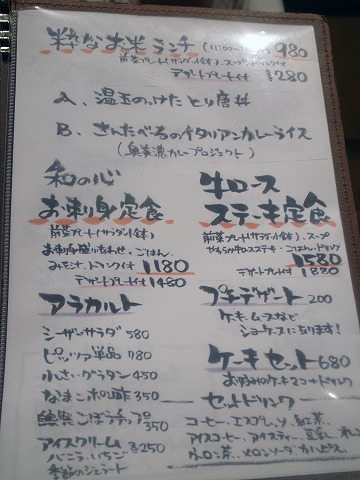 粋なお米ランチ (11:00〜 980
前菜プレート(サラダ小鉢)、スープ、ドリンク付
デザートプレート付 ¥1280
A、温玉のっけたとり唐丼
B、きんたべるのイタリアンカレーライス
(奥美濃カレープロジェクト)
和の心
お刺身定食
前菜プレート(サラダ小鉢)
お刺身盛り合わせ、ごはん、
みそ汁、ドリンク付 1180
デザートプレート付 1480
牛ロース
ステーキ定食
前菜プレート(サラダ、小鉢)、スープ
やわらか牛ロースステーキ・ごはん、ドリンク
1580
デザートプレート付 1880
アラカルト
シーザーサラダ 580
ピッツァ単品 980
小さいグラタン 450
なまこポン酢 350
ごぼうチップ 350
アイスクリーム 各250
バニラ、いちご
季節のジェラート
プチデザート 200
ケーキ、ムースなど
ショーケースにあります!
ケーキセット 680
お好みのケーキ2コ+ドリンク
セットドリンク
コーヒー、エスプレッソ、紅茶、
アイスコーヒー、アイスティー、豆乳、オレンジ
ウーロン茶、メロンソーダ、カルピス、